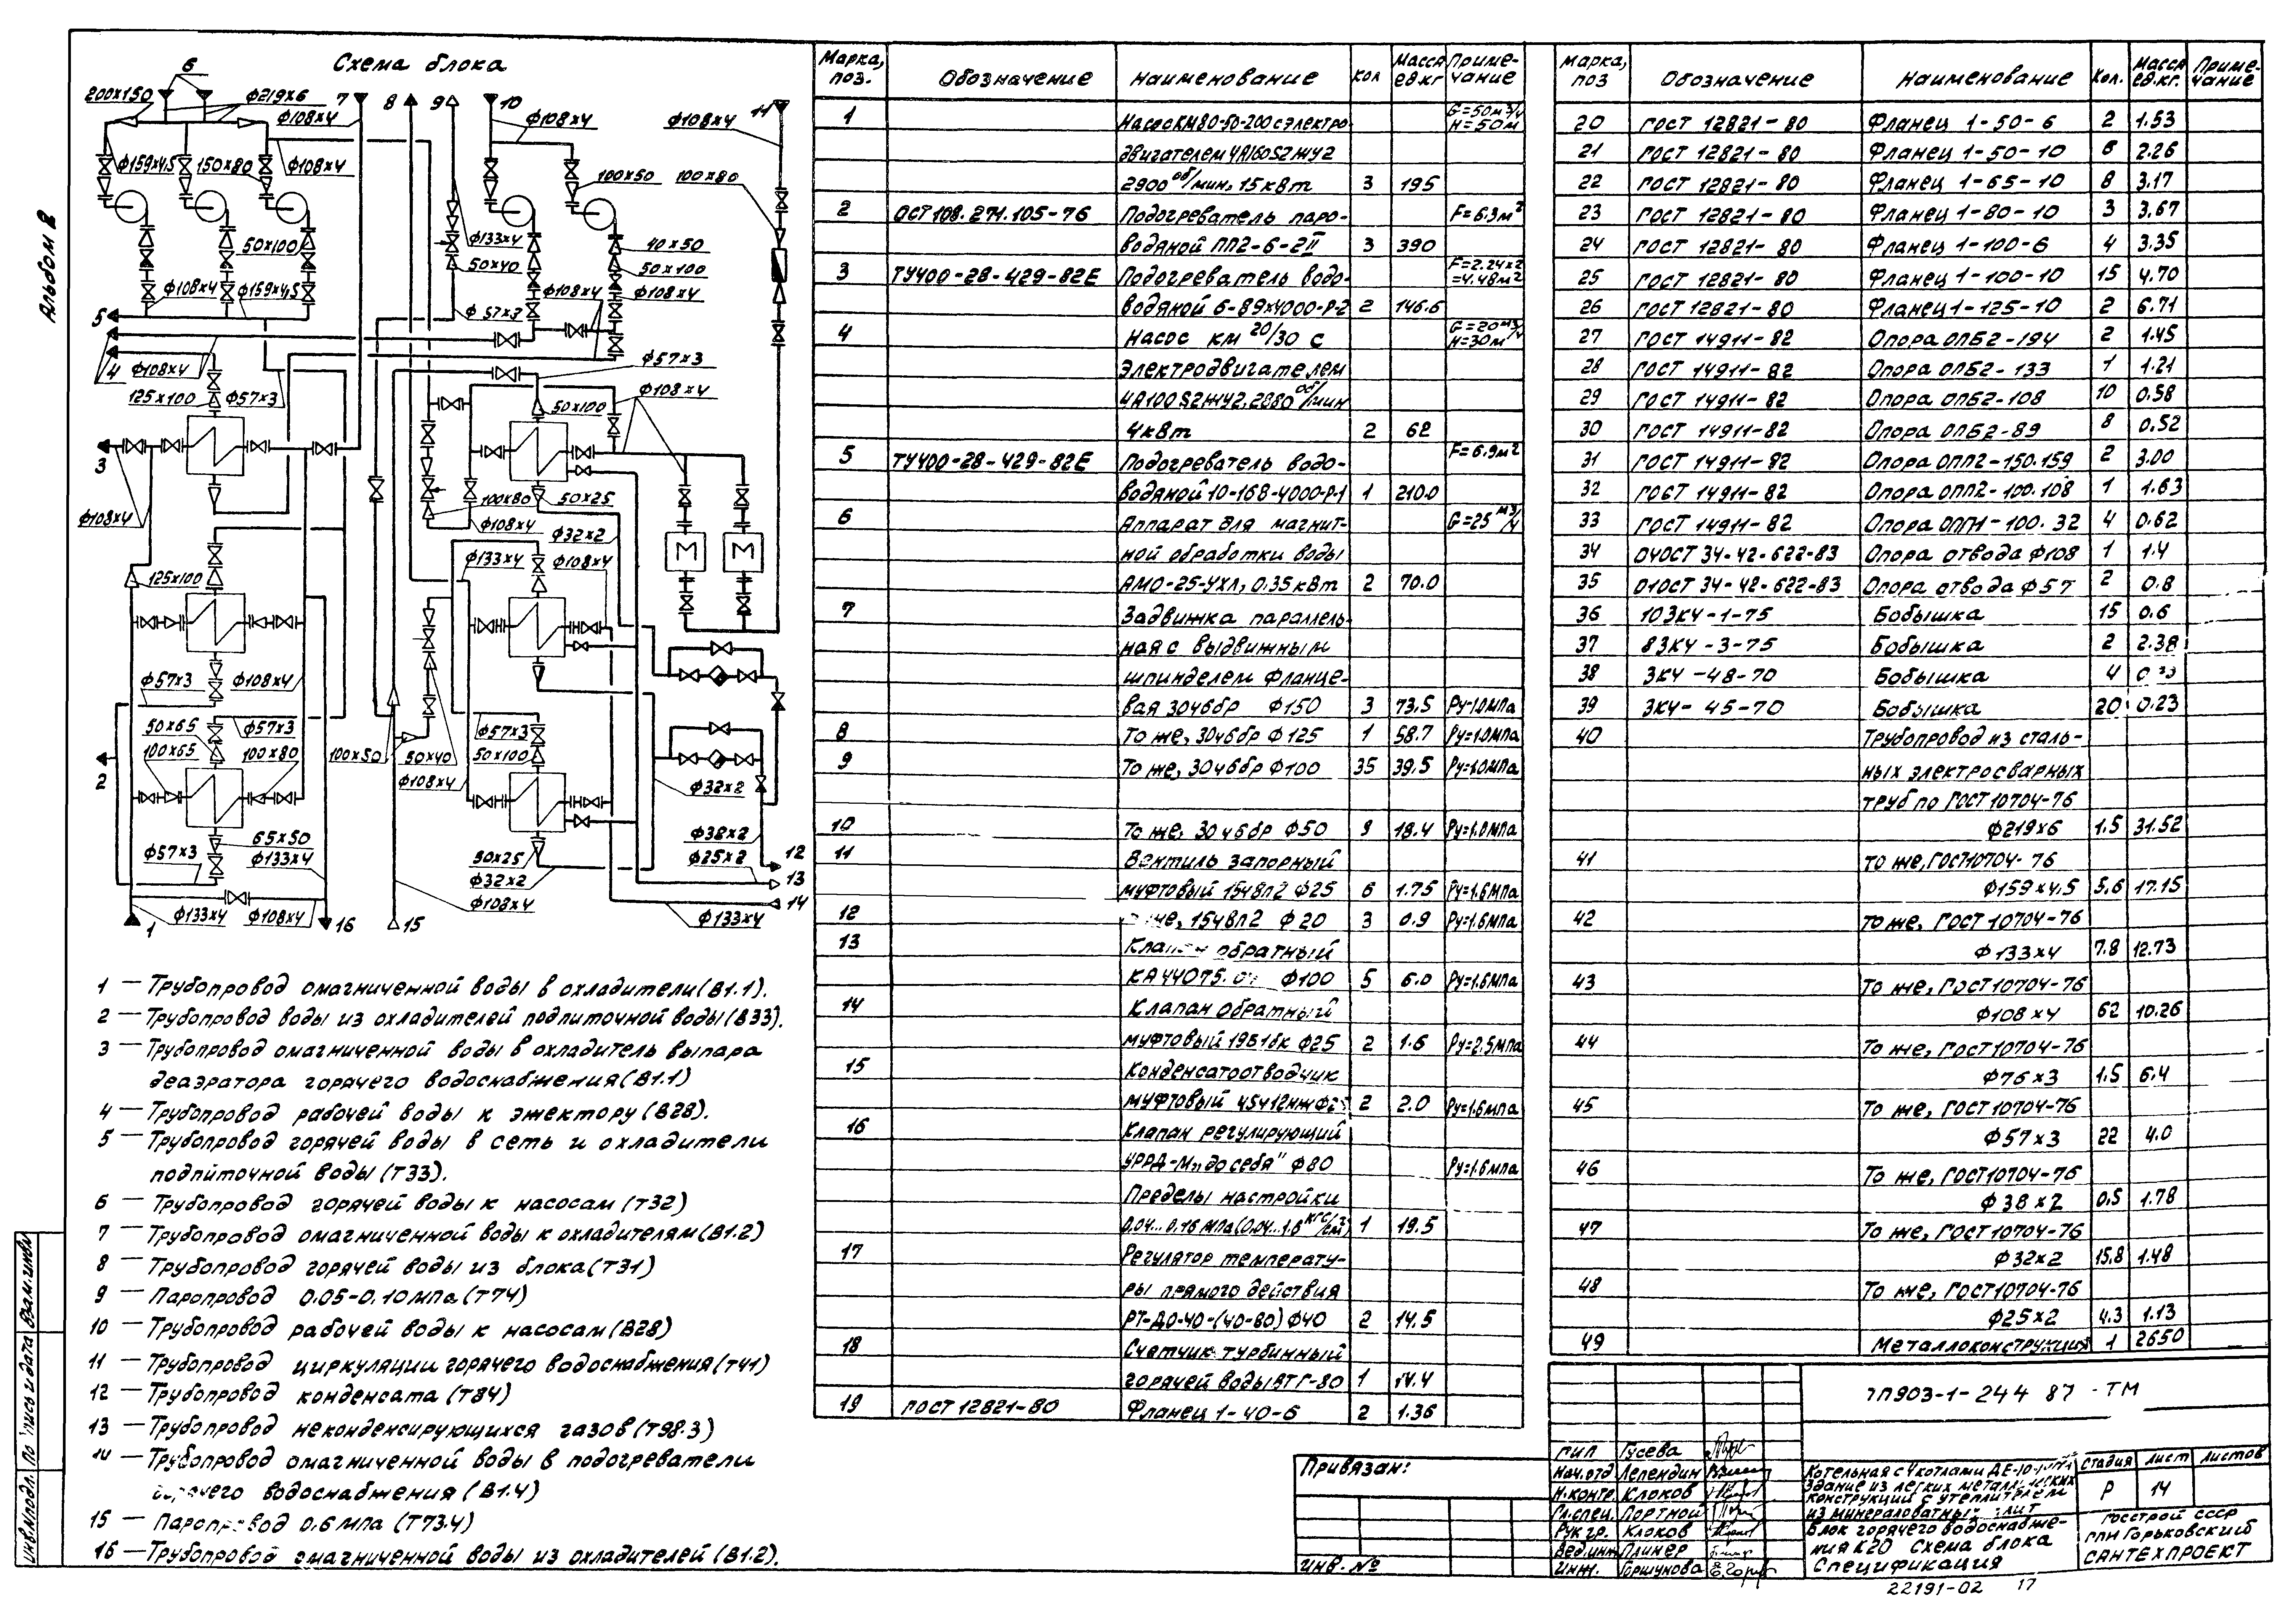 Альбом 2
Схема блока
6
200х150
ф219х6
7
8
9
10
11
ф108х4
ф108х4
ф108х4
ф159х4,5
150х80
ф108х4
100х50
100х80
50х100
ф133х4
50х40
40х50
50х100
ф108х4
ф159х4,5
ф108х4
ф108х4
5
ф57х3
4
ф108х4
ф57х3
ф108х4
125х100
ф57х3
50х100
3
100х80
50х25
ф108х4
ф108х4
ф32х2
ф133х4
ф108х4
125х100
М
М
ф57х3
ф108х4
50х65
ф57х3
ф57х3
100х65
100х80
100х50
50х40
50х100
2
ф108х4
ф32х2
65х50
ф38х2
ф57х3
ф133х4
50х25
ф25х2
12
ф32х2
13
ф108х4
14
ф133х4
ф108х4
ф133х4
1
16
15
1 — Трубопровод омагниченной воды в охладители (В1.1).
2 — Трубопровод воды из охладителей подпиточной воды (В33).
3 — Трубопровод омагниченной воды в охладитель выпара
деаэратора горячего водоснабжения (В1.1)
4 — Трубопровод рабочей воды к эжектору (В28).
5 — Трубопровод горячей воды в сеть и охладители
подпиточной воды (Т33).
6 — Трубопровод горячей воды к насосам (Т32)
7 — Трубопровод омагниченной воды к охладителям (В1.2)
8 — Трубопровод горячей воды из блока (Т31)
9 — Паропровод 0.05-0,10 мпа (Т74)
10 — Трубопровод рабочей воды к насосам (В28)
11 — Трубопровод циркуляции горячего водоснабжения (Т41)
12 — Трубопровод конденсата (Т84)
13 — Трубопровод неконденсирующихся газов (Т98.3)
14 — Трубопровод омагниченной воды в подогреватели
горячего водоснабжения (В1.4)
15 — Паропровод 0.6 мпа (Т73.4)
16 — Трубопровод омагниченной воды из охладителей (В1.2).
Марка, поз. Обозначение Наименование Кол Масса ед.кг Приме-чание
1 Насос КМ 80-50-200 с электро- G=50м3/ч Н=50м
двигателем 4А160S2ЖУ2
2900 об/мин, 15 кВт 3 195
2 ОСТ 108.271.105-76 Подогреватель паро- F=6.3м2
водяной ПП2-6-2II 3 390
3 ТУ400-28-429-82Е Подогреватель водо- F=2.24х2=4.48м2
водяной 6-89х4000-Р-2 2 146.6
4 Насос КМ 20/30 с G=20м3/ч Н=30м
электродвигателем
4А100S2ЖУ2, 2880 об/мин
4кВт 2 62
5 ТУ400-28-429-82Е Подогреватель водо- F=6.9м2
водяной 10-168-4000-Р-1 1 210.0
6 Аппарат для магнит- G=25 м3/ч
ной обработки воды
АМО-25-УХЛ, 0.35кВт 2 70.0
7 Задвижка параллель-
ная с выдвижным
шпинделем фланце-
вая 30ч6бр ф150 3 73,5 Ру=1.0мпа
8 То же, 30ч6бр ф125 1 58.7 Ру=1.0мпа
9 То же, 30ч6бр ф100 35 39,5 Ру=1.0мпа
10 То же, 30ч6бр ф50 9 18.4 Ру=1.0мпа
11 Вентиль запорный
муфтовый 15ч8п2 ф25 6 1.75 Ру=1.6мпа
12 же, 15ч8п2 ф20 3 0.9 Ру=1.6мпа
13 Клапан обратный
КА44075. ф100 5 6.0 Ру=1.6мпа
14 Клапан обратный
муфтовый 19Б1бк ф25 2 1.6 Ру=2.5мпа
15 Конденсатоотводчик
муфтовый 45ч12нж 2 2.0 Ру=1.6мпа
16 Клапан регулирующий
УРРД-М „до себя" ф80 Ру=1.6мпа
Пределы настройки
0.04...0.16 мпа (0.04...1.6 кгс/см2) 1 19.5
17 Регулятор температу-
ры прямого действия
РТ-ДО-40-(40-80) ф40 2 14.5
18 Счетчик турбинный
горячей воды ВТГ-80 1 14.4
19 ГОСТ 12821-80 Фланец 1-40-6 2 1.36
Марка, поз Обозначение Наименование Кол. Масса ед.кг. Приме-чание
20 ГОСТ 12821-80 Фланец 1-50-6 2 1.53
21 ГОСТ 12821-80 Фланец 1-50-10 6 2.26
22 ГОСТ 12821-80 Фланец 1-65-10 8 3.17
23 ГОСТ 12821-80 Фланец 1-80-10 3 3,67
24 ГОСТ 12821-80 Фланец 1-100-6 4 3.35
25 ГОСТ 12821-80 Фланец 1-100-10 15 4.70
26 ГОСТ 12821-80 Фланец 1-125-10 2 6.71
27 ГОСТ 14911-82 Опора ОПБ2-194 2 1.45
28 ГОСТ 14911-82 Опора ОПБ2-133 1 1.21
29 ГОСТ 14911-82 Опора ОПБ2-108 10 0.58
30 ГОСТ 14911-82 Опора ОПБ2-89 8 0.52
31 ГОСТ 14911-82 Опора ОПП2-150.159 2 3.00
32 ГОСТ 14911-82 Опора ОПП2-100.108 1 1.63
33 ГОСТ 14911-82 Опора ОПП1-100.32 4 0.62
34 04ОСТ 34-42-622-83 Опора отвода ф108 1 1.4
35 01ОСТ 34-42-622-83 Опора отвода ф57 2 0.8
36 103К4-1-75 Бобышка 15 0.6
37 83К4-3-75 Бобышка 2 2.38
38 3К4-48-70 Бобышка 4
39 3К4-45-70 Бобышка 20 0.23
40 Трубопровод из сталь-
ных электросварных
труб по ГОСТ 10704-76
ф219х6 1.5 31.52
41 То же, ГОСТ 10704-76
ф159х4,5 5.6 17.15
42 То же, ГОСТ 10704-76
ф133х4 7.8 12.73
43 То же, ГОСТ 10704-76
ф108х4 62 10.26
44 То же, ГОСТ 10704-76
ф76х3 1.5 6.4
45 То же, ГОСТ 10704-76
ф57х3 22 4.0
46 То же, ГОСТ 10704-76
ф38х2 0.5 1.78
47 То же, ГОСТ 10704-76
ф32х2 15.8 1.48
48 То же, ГОСТ 10704-76
ф25х2 4.3 1.13
49 Металлоконструкция 1 2650
ТП903-1-244 87 - ТМ
Привязан:
Инв. №
ГИП Гусева
Нач.отд Лепендин
Н.контр. Клоков
Гл.спец. Портной
Рук гр. Клоков
Вед.инж Плинер
Инж. Горшунова
Котельная с 4 котлами
Здание из легких металлических
конструкций с утеплителем
из минераловатных плит
Блок горячего водоснабже-
ния К20 Схема блока
Спецификация
Стадия Лист Листов
Р 14
Госстрой СССР
ГПИ Горьковский
САНТЕХПРОЕКТ
22191-02 17
Инв.№подл. Подпись и дата Взам.инв№